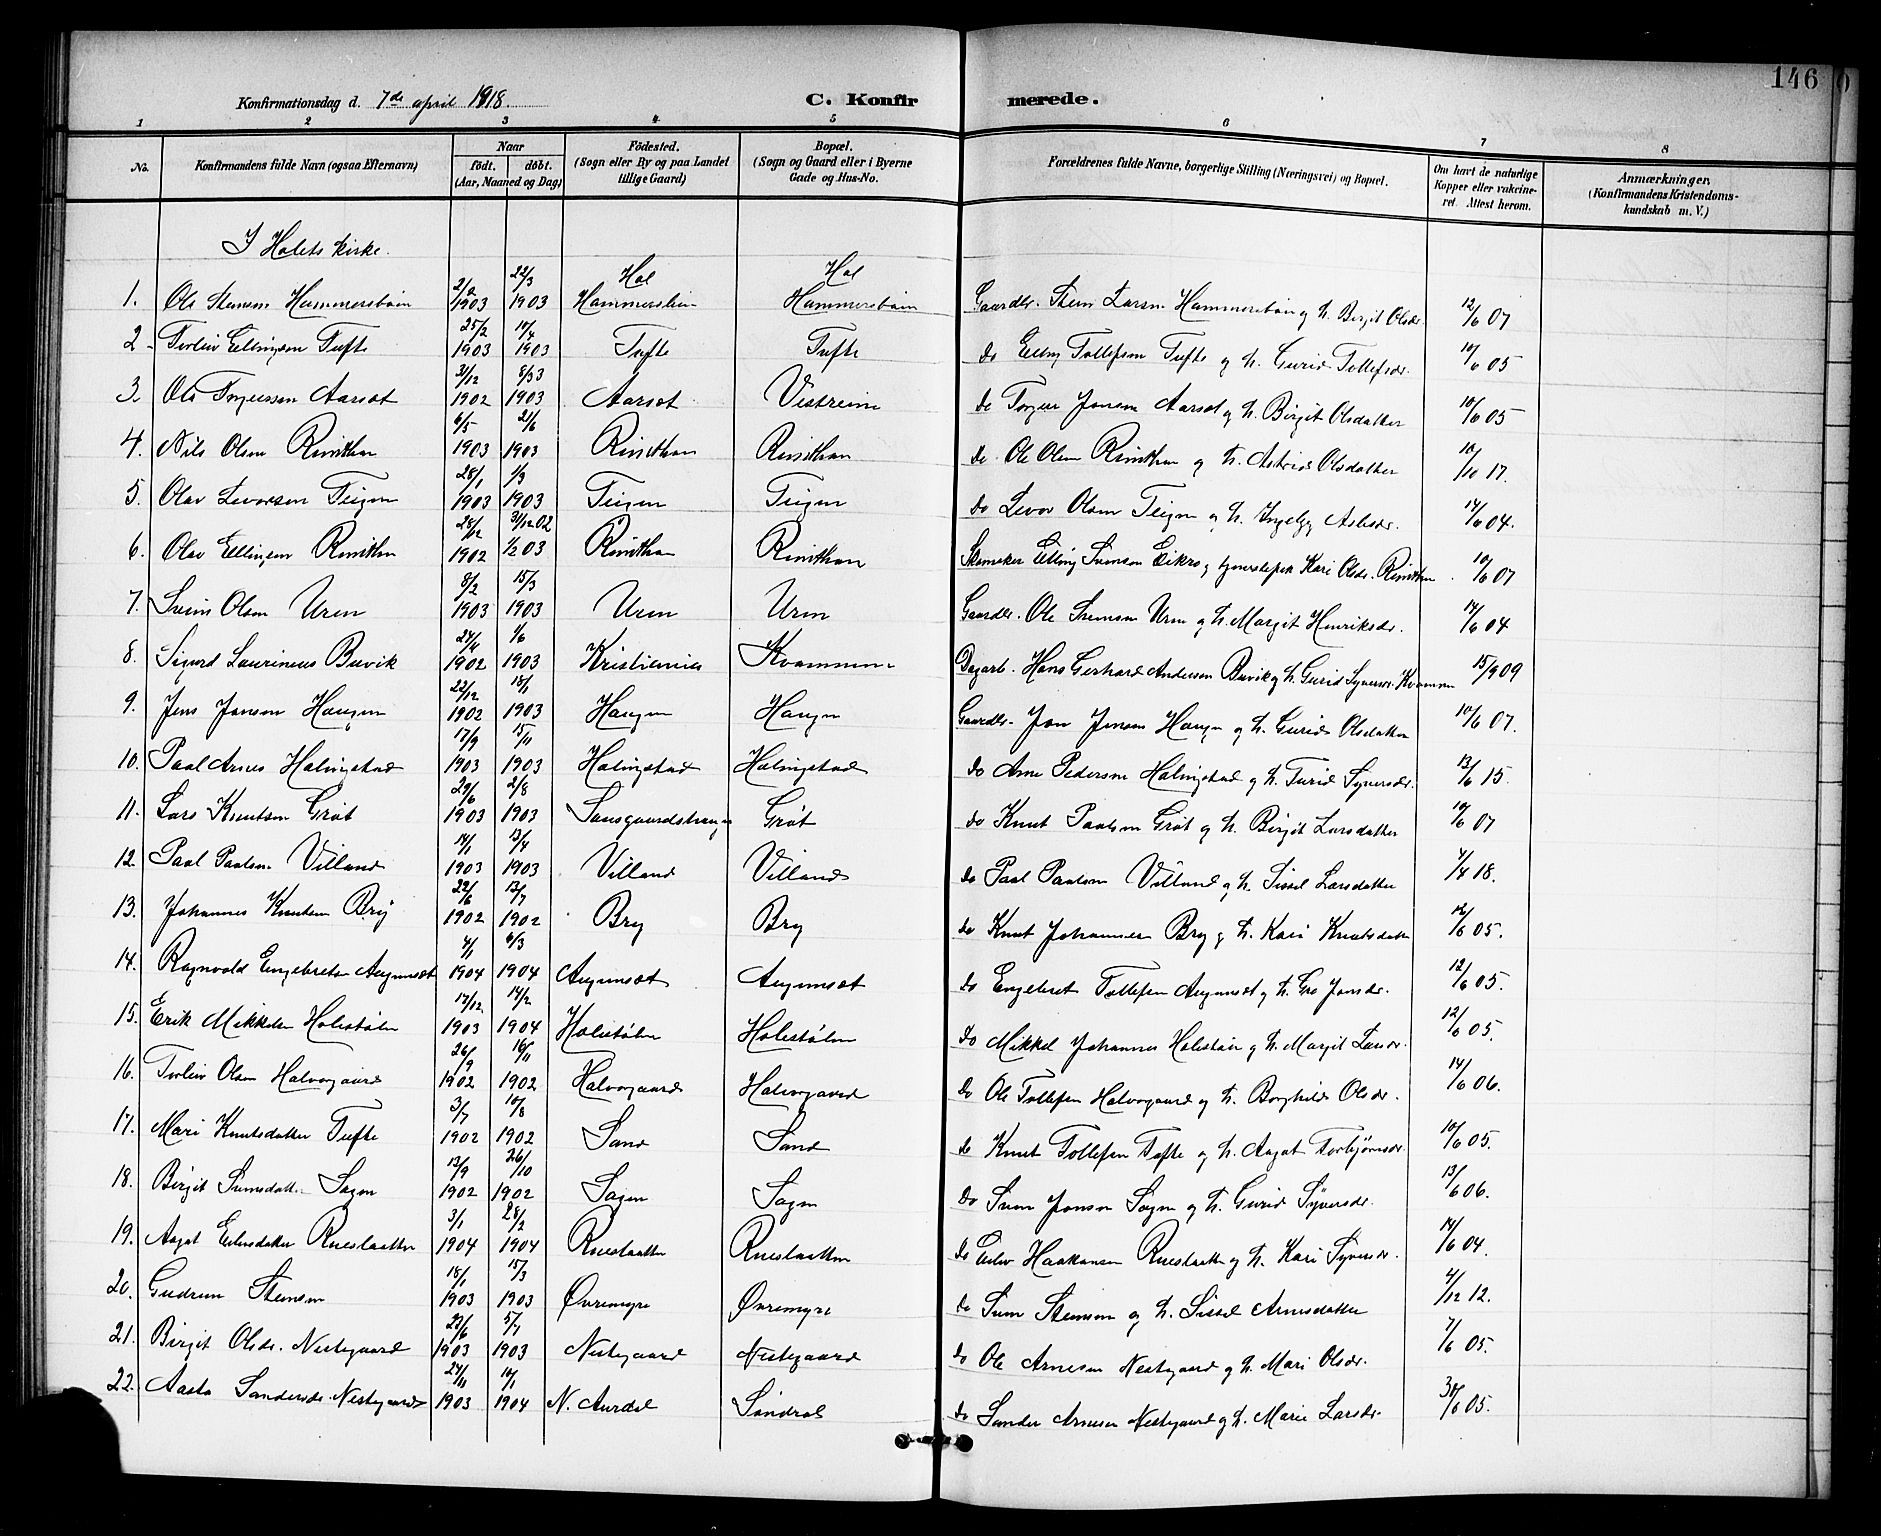 146
Konfirmationsdag d. 7de april 1918. C. Konfirmerede.
1 2 3 4 5 6 7 8
No. Konfirmandens fulde Navn (ogsaa Efternavn) Naar født. døbt. (Aar, Maaned og Dag) Fødested. (Sogn eller By og paa Landet tillige Gaard) Bopæl. (Sogn og Gaard eller i Byerne Gade og Hus-No. Forældrenes fulde Navne, borgerlige Stilling (Næringsvei) og Bopæl. Om havt de naturlige Kopper eller vakcineret. Attest herom. Anmærkninger. (Konfirmandens Kristendomskundskab m. V.)
I Holets kirke.
Hol Hol
1. Ole Steinsen Hammersbøin 2/2 1903 22/3 1903 Hammersbøin Hammersbøin Gaardbr. Stein Larsen Hammersbøin og h. Birgit Olsdr. 12/6 07
2. Torleiv Ellingsen Tufte 25/2 1903 1903 Tufte Tufte do Elling Tollefsen Tufte og h. Gurid Tollefsdr. 10/6 05
3. Ole Torgeirsen Aarset 31/12 1902 8/3 1903 Aarset Vestreim do Torgeir Jonsen Aarset og h. Birgit Olsdatter 10/6 05
4. Nils Olsen 6/5 1903 21/6 1903 do Ole Olsen og h. Astrid Olsdatter 10/10 17.
5. Olav Levorsen Teigen 28/1 1903 1/3 1903 Teigen Teigen do Levor Olsen Teigen og h. Ingebjg 14/6 04.
6. Olav Ellingsen 28/12 1902 31/12 02 1/2 03 Elling Svensen og Kari Olsdr. 10/6 07
7. Svein Olsen Urm 8/2 1903 15/3 1903 Urm Urm Gaardbr. Ole Urm og h. Margit Henriksdr. 14/6 04
8. Sigurd Laurineus Buvik 24/4 1902 1/6 1903 Kristiania Kvammen Dagarb. Hans Gerhard Andersen Buvik og h. Gurid Syversdr. Kvammen 15/9 09
9. Jens Jonsen Haugen 22/12 1902 18/1 1903 Haugen Haugen Gaardbr. Jon Jensen Haugen og h. Gurid Olsdatter 10/6 07.
10. Paal Arnes Holingstad 17/9 1903 15/11 1903 Holingstad Holingstad do Arne Pedersen Holingstad og h. Turid Syversdr. 13/6 15.
11. Lars Knutsen Grøt 29/6 1903 2/8 1903 Grøt do Knut Paalsen Grøt og h. Birgit Larsdatter 10/6 07
12. Paal Paalsen Villand 14/1 1903 13/4 1903 Villand Villand do Paal Paalsen Villand og h. Sissel Larsdatter 4/4 18.
13. Johannes Knutsen Bry 22/6 1902 13/7 1902 Bry Bry do Knut Johannesen Bry og h. Kari Knutsdatter 12/6 05.
14. Ragnvald Engebretsen Augunset 4/1 1904 6/3 1904 Augunset Augunset do Engebret Tollefsen Augunset og h. Gro Jonsdr. 12/6 05.
15. Erik Mikkelsen Holestølen 17/12 1903 14/2 1904 Holestølen Holestølen do Mikkel Johannes og h. Margit Larsdr. 12/6 05.
16. Torleiv Olsen Halvorgaard 26/9 1902 16/11 1902 Halvorgaard Halvorgaard do Ole Tollefsen Halvorgaard og h. Borghild Olsdr. 14/6 06.
17. Mari Knutsdatter Tufte 3/7 1902 10/8 1902 Sand Sand do Knut Tollefsen Tufte og h. Aagot Torbjørnsdr. 10/6 05.
18. Birgit Svensdatter Sagen 13/9 1902 26/10 1902 Sagen Sagen do Sven Jonsen Sagen og h. Gurid Syversdr. 13/6 06.
19. Aagot Eilevsdatter Rueslaatten 3/1 1904 28/2 1904 Rueslaatten Rueslaatten do Eilev Haakonsen Rueslaatten og h. Kari Syversdr. 14/6 04.
20. Gudrun Steinsen 18/1 1903 15/3 1903 Øvremyre Øvremyre do Steinsen og h. Sissel Arnesdatter 4/12 12.
21. Birgit Olsdr. Nestegaard 23/6 1903 5/7 1903 Nestegaard Nestegaard do Ole Arnesen Nestegaard og h. Mari Olsdr. 7/6 05.
22. Aasta Sandersdr. Nestegaard 24/11 1903 1904 N. Aurdal Sundral do Sander Arnesen Nestegaard og h. Marie Larsdr. 05.